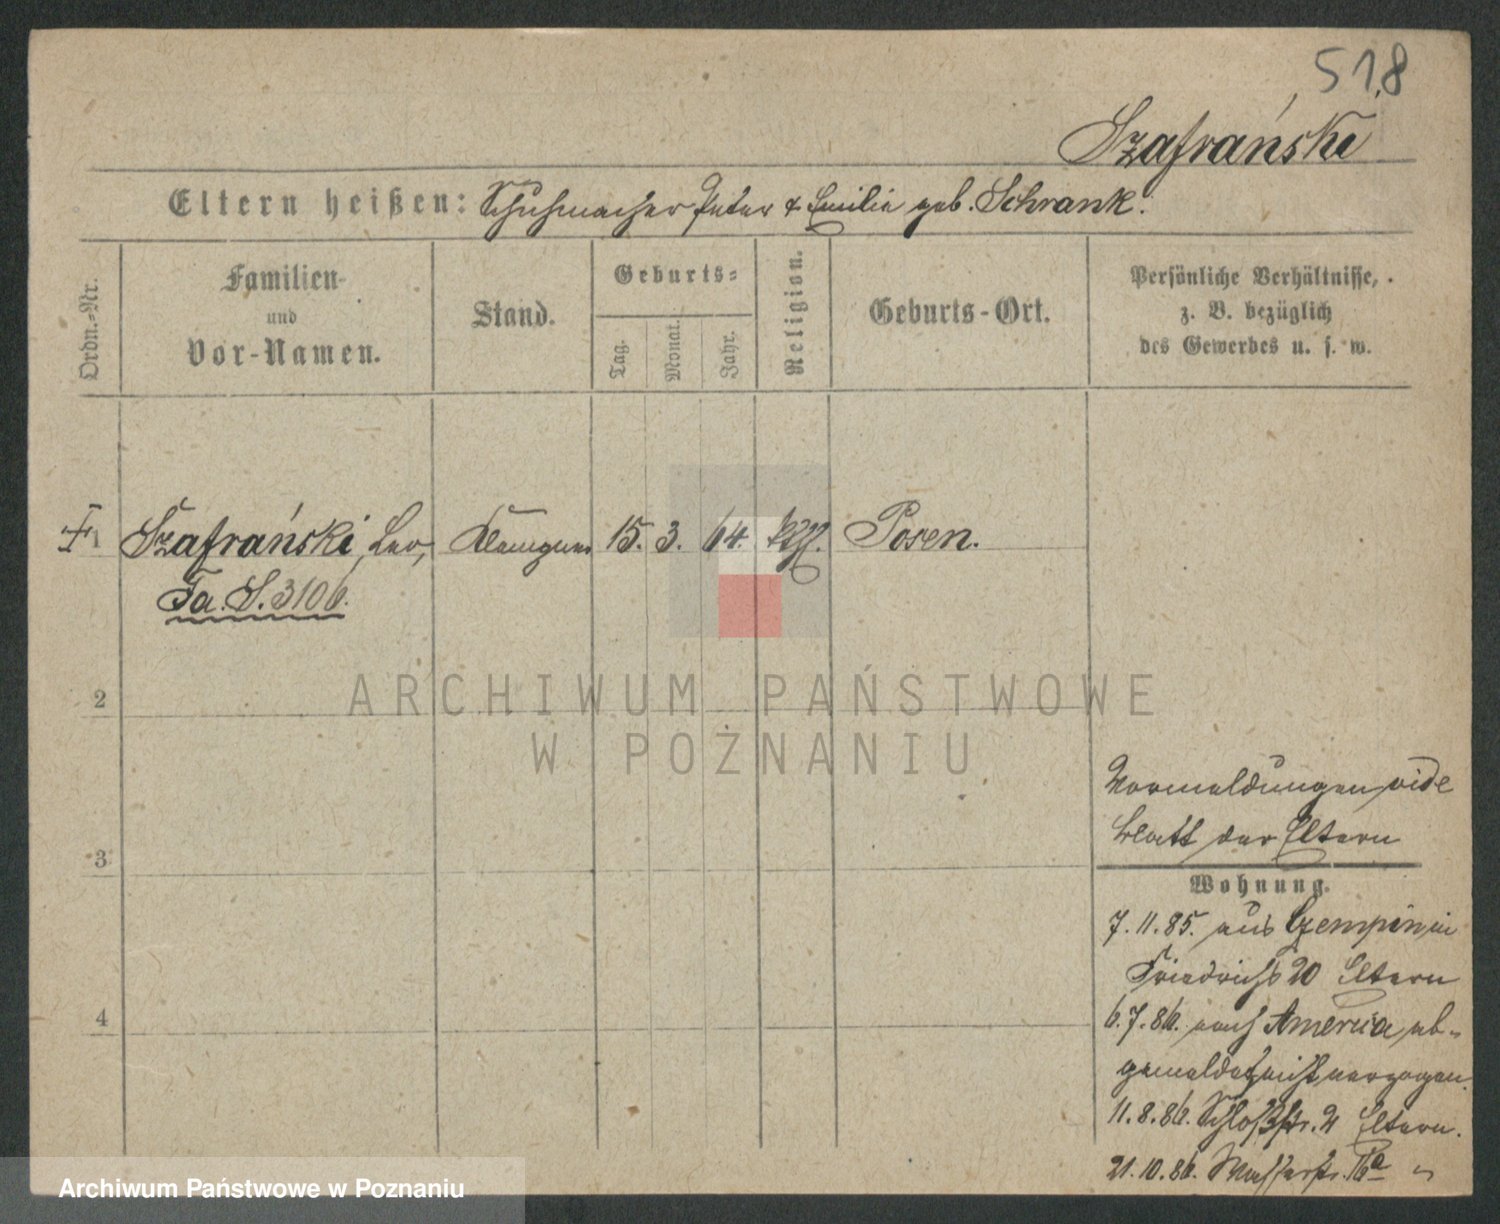 51,8
Szafrański
Eltern heißen: Schuhmacher Peter & Emilie geb. Schrank.
Ordn.-Nr.
Familien-
und
Vor-Namen.
Stand.
Geburts-
Tag.
Monat.
Jahr.
Religion.
Geburts-Ort.
Persönliche Verhältnisse,
z. B. bezüglich
des Gewerbes u. s. w.
1 Szafrański, Leo, Klempner 15. 3. 64. kth. Posen.
Fa. S. 3106.
ARCHIWUM PAŃSTWOWE
W POZNANIU
2
3
4
Vormeldungen vide
Blatt der Eltern
Wohnung.
7.11.85. aus Czempin in
Friedrichs 20 Eltern
6.7.86. nach America ab-
gemeldet nicht verzogen.
11.8.86. Schloßstr. 4 Eltern.
21.10.86. Wasserstr. 16a "
Archiwum Państwowe w Poznaniu